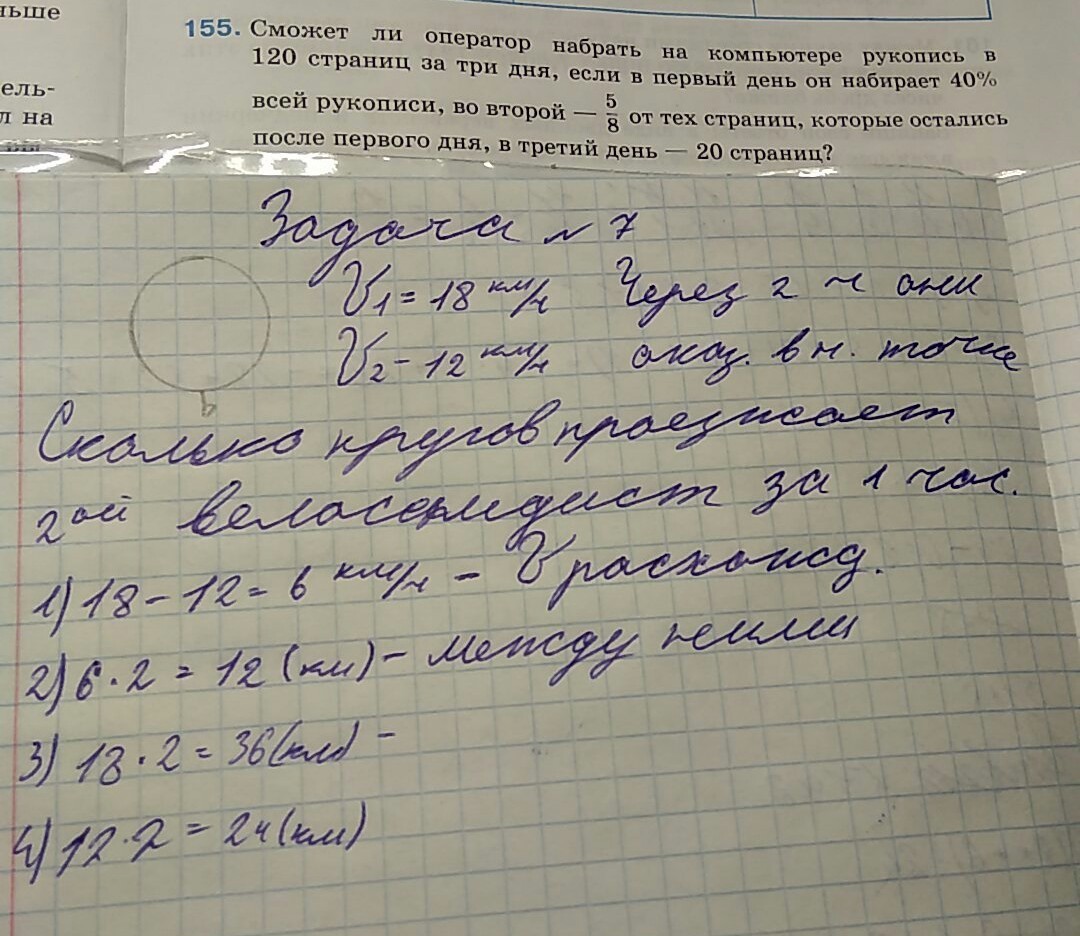 ньше
ель-
л на
155. Сможет ли оператор набрать на компьютере рукопись в
120 страниц за три дня, если в первый день он набирает 40%
всей рукописи, во второй — 5/8 от тех страниц, которые остались
после первого дня, в третий день — 20 страниц?
Задача № 7
V₁ = 18 км/ч Через 2 ч они
V₂ - 12 км/ч оказ. в н. точке
Сколько кругов проезжает
2ой велосепидист за 1 час.
1) 18 - 12 = 6 км/ч - V расхожд.
2) 6 · 2 = 12 (км) - между ними
3) 18 · 2 = 36 (км) -
4) 12 · 2 = 24 (км)